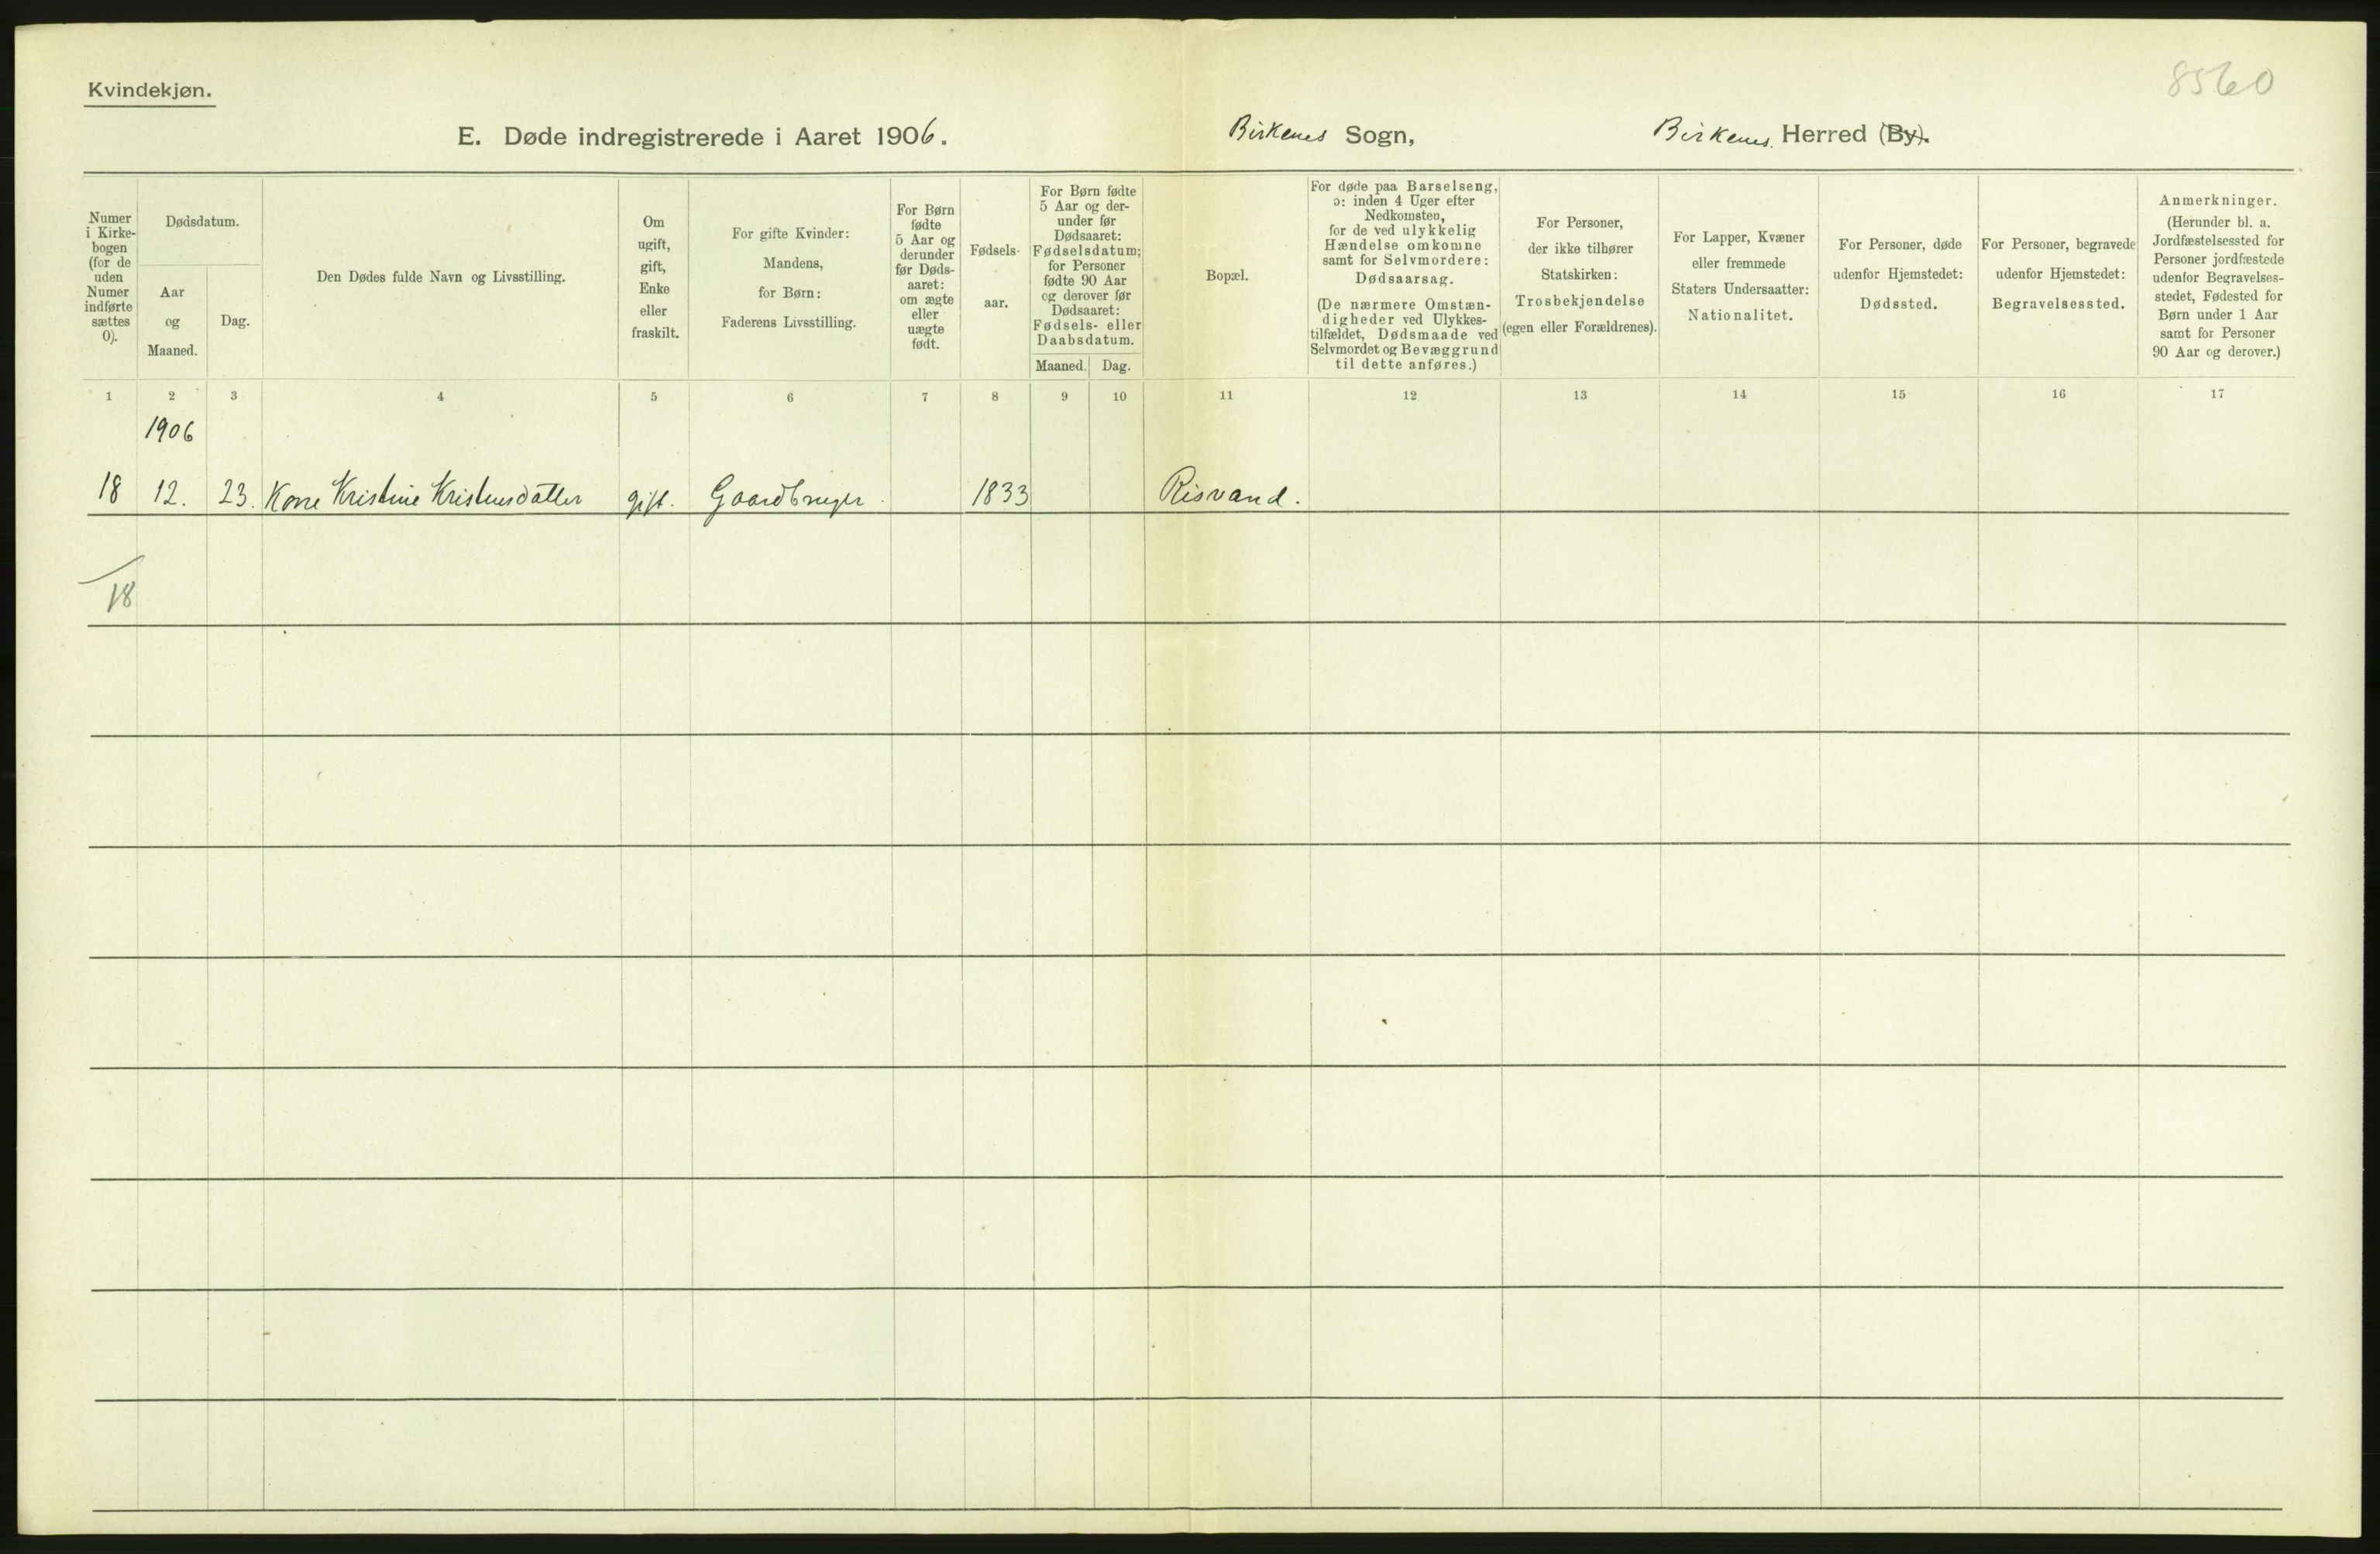 Kvindekjøn.
8560
E. Døde indregistrerede i Aaret 1906.
Birkenes Sogn,
Birkenes Herred (By).
Numer
i Kirke-
bogen
(for de
uden
Numer
indførte
sættes
0).
Dødsdatum.
Aar
og
Maaned.
Dag.
Den Dødes fulde Navn og Livsstilling.
Om
ugift,
gift,
Enke
eller
fraskilt.
For gifte Kvinder:
Mandens,
for Børn:
Faderens Livsstilling.
For Børn
fødte
5 Aar og
derunder
før Døds-
aaret:
om ægte
eller
uægte
født.
Fødsels-
aar.
For Børn fødte
5 Aar og der-
under før
Dødsaaret:
Fødselsdatum;
for Personer
fødte 90 Aar
og derover før
Dødsaaret:
Fødsels- eller
Daabsdatum.
Maaned. Dag.
Bopæl.
For døde paa Barselseng,
ɔ: inden 4 Uger efter
Nedkomsten,
for de ved ulykkelig
Hændelse omkomne
samt for Selvmordere:
Dødsaarsag.
(De nærmere Omstæn-
digheder ved Ulykkes-
tilfældet, Dødsmaade ved
Selvmordet og Bevæggrund
til dette anføres.)
For Personer,
der ikke tilhører
Statskirken:
Trosbekjendelse
(egen eller Forældrenes).
For Lapper, Kvæner
eller fremmede
Staters Undersaatter:
Nationalitet.
For Personer, døde
udenfor Hjemstedet:
Dødssted.
For Personer, begravede
udenfor Hjemstedet:
Begravelsessted.
Anmerkninger.
(Herunder bl. a.
Jordfæstelsessted for
Personer jordfæstede
udenfor Begravelses-
stedet, Fødested for
Børn under 1 Aar
samt for Personer
90 Aar og derover.)
1 2 3 4 5 6 7 8 9 10 11 12 13 14 15 16 17
1906
18 12. 23. Kristine Kristensdatter gift. Gaardbruger. 1833 Risvand.
18